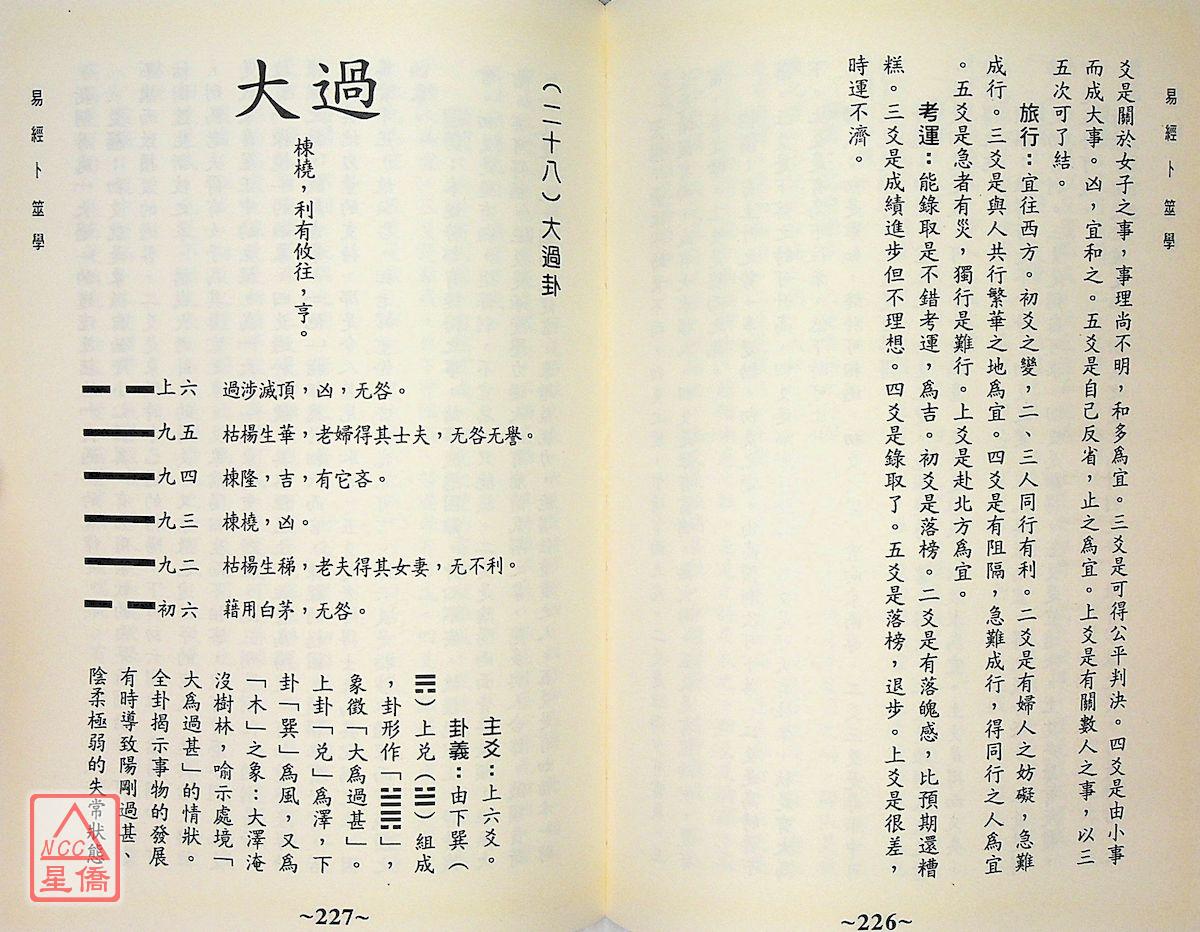 易經卜筮學
爻是關於女子之事，事理尚不明，和多為宜。三爻是可得公平判決。四爻是由小事
而成大事。凶，宜和之。五爻是自己反省，止之為宜。上爻是有關數人之事，以三
五次可了結。
旅行：宜往西方。初爻之變，二、三人同行有利。二爻是有婦人之妨礙，急難
成行。三爻是與人共行繁華之地為宜。四爻是有阻隔，急難成行，得同行之人為宜
。五爻是急者有災，獨行是難行。上爻是赴北方為宜。
考運：能錄取是不錯考運，為吉。初爻是落榜。二爻是有落魄感，比預期還糟
糕。三爻是成績進步但不理想。四爻是錄取了。五爻是落榜，退步。上爻是很差，
時運不濟。
~226~
（二十八）大過卦
大過
棟橈，利有攸往，亨。
上六 過涉滅頂，凶，无咎。
九五 枯楊生華，老婦得其士夫，无咎无譽。
九四 棟隆，吉，有它吝。
九三 棟橈，凶。
九二 枯楊生稊，老夫得其女妻，无不利。
初六 藉用白茅，无咎。
主爻：上六爻。
卦義：由下巽（
☴）上兑（☱）組成
，卦形作「䷛」，
象徵「大為過甚」。
上卦「兑」為澤，下
卦「巽」為風，又為
「木」之象：大澤淹
沒樹林，喻示處境「
大為過甚」的情狀。
全卦揭示事物的發展
有時導致陽剛過甚、
陰柔極弱的失常狀態
易經卜筮學
~227~
NCC
星僑